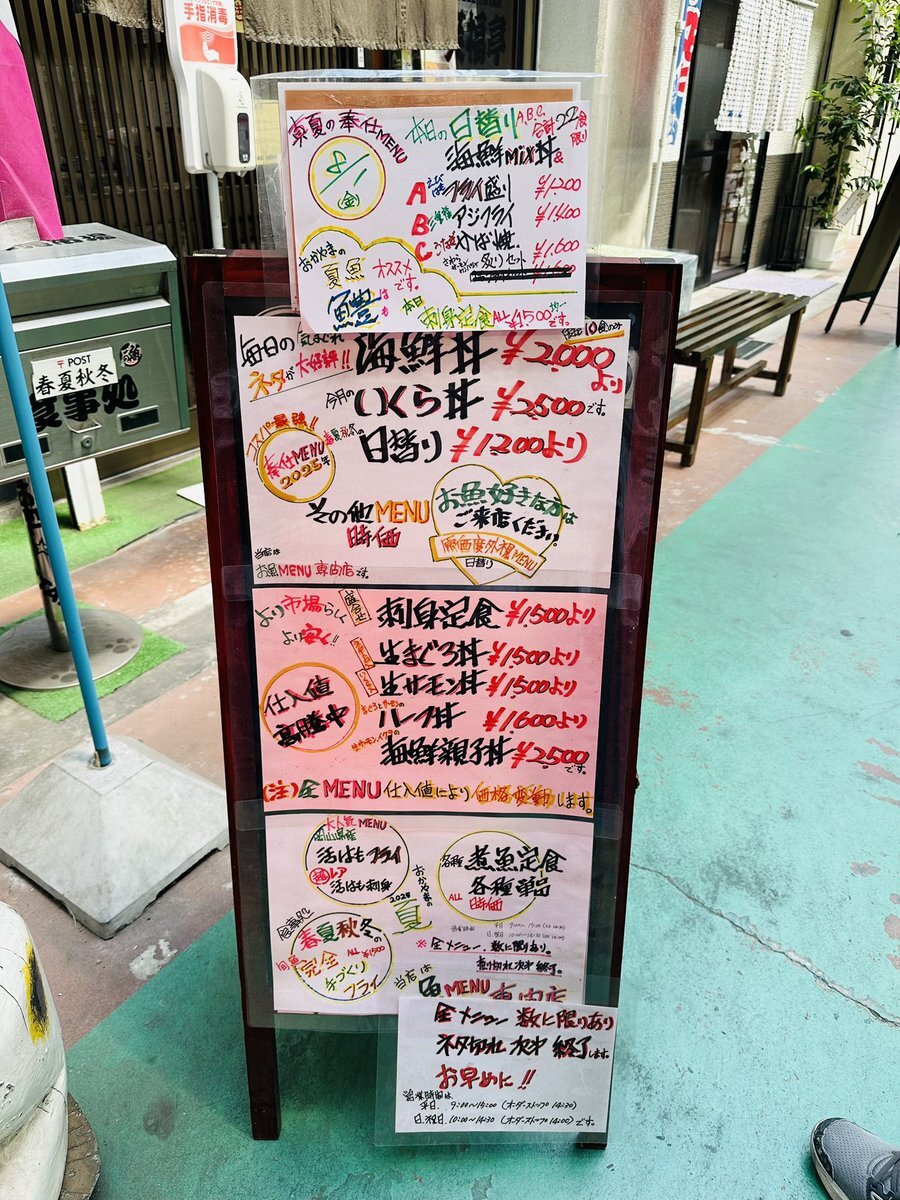 手指消毒
真夏の奉仕MENU
8/1
(金)
本日の日替り
A,B,C,
合計22食限り
海鮮mix丼&
A えび フライ盛り ¥1,200
B アジフライ ¥1,400
C かば焼 ¥1,600
炙りセット
おかやまの
夏魚
オススメ
です。
鱧は
も
本日
刺身定食 ALL ¥1,500均一
毎日の気まぐれ
ネタが大好評!!
海鮮丼 ¥2,000より
今月の いくら丼 ¥2,500です。
コスパ最強!!
奉仕MENU
2025年
春夏秋冬の
日替り ¥1200より
その他MENU
時価
お魚好きな方は
ご来店ください
原価度外視MENU
日替り
当店は
お魚MENU専門店です。
〒POST
春夏秋冬
食事処
より市場らしく
より安く!!
盛合せ
刺身定食 ¥1,500より
生まぐろ丼 ¥1500より
生サーモン丼 ¥1,500より
まぐろとサーモンの
ハーフ丼 ¥1600より
生サーモンイクラの
海鮮親子丼 ¥2,500です。
仕入値
高騰中
(注)全MENU仕入値により価格変動します。
大人気MENU
岡山県産
活はもフライ
超レア
活はも刺身
おかやまの
夏
2025
各種
煮魚定食
各種単品
ALL
時価
営業時間
平日 9:00〜15:00
日.祝日 10:00〜14:30
※全メニュー、数に限りあり。
売り切れ次第終了。
食事処
春夏秋冬の
ALL ¥1500
旬魚
完全
手づくり
フライ
当店は
魚MENU専門店
全メニュー数に限りあり
ネタ切れ次第終了します。
お早めに!!
営業時間は
平日. 9:00〜15:00 (オーダーストップ 14:30)
日.祝日. 10:00〜14:30 (オーダーストップ 14:00)です。